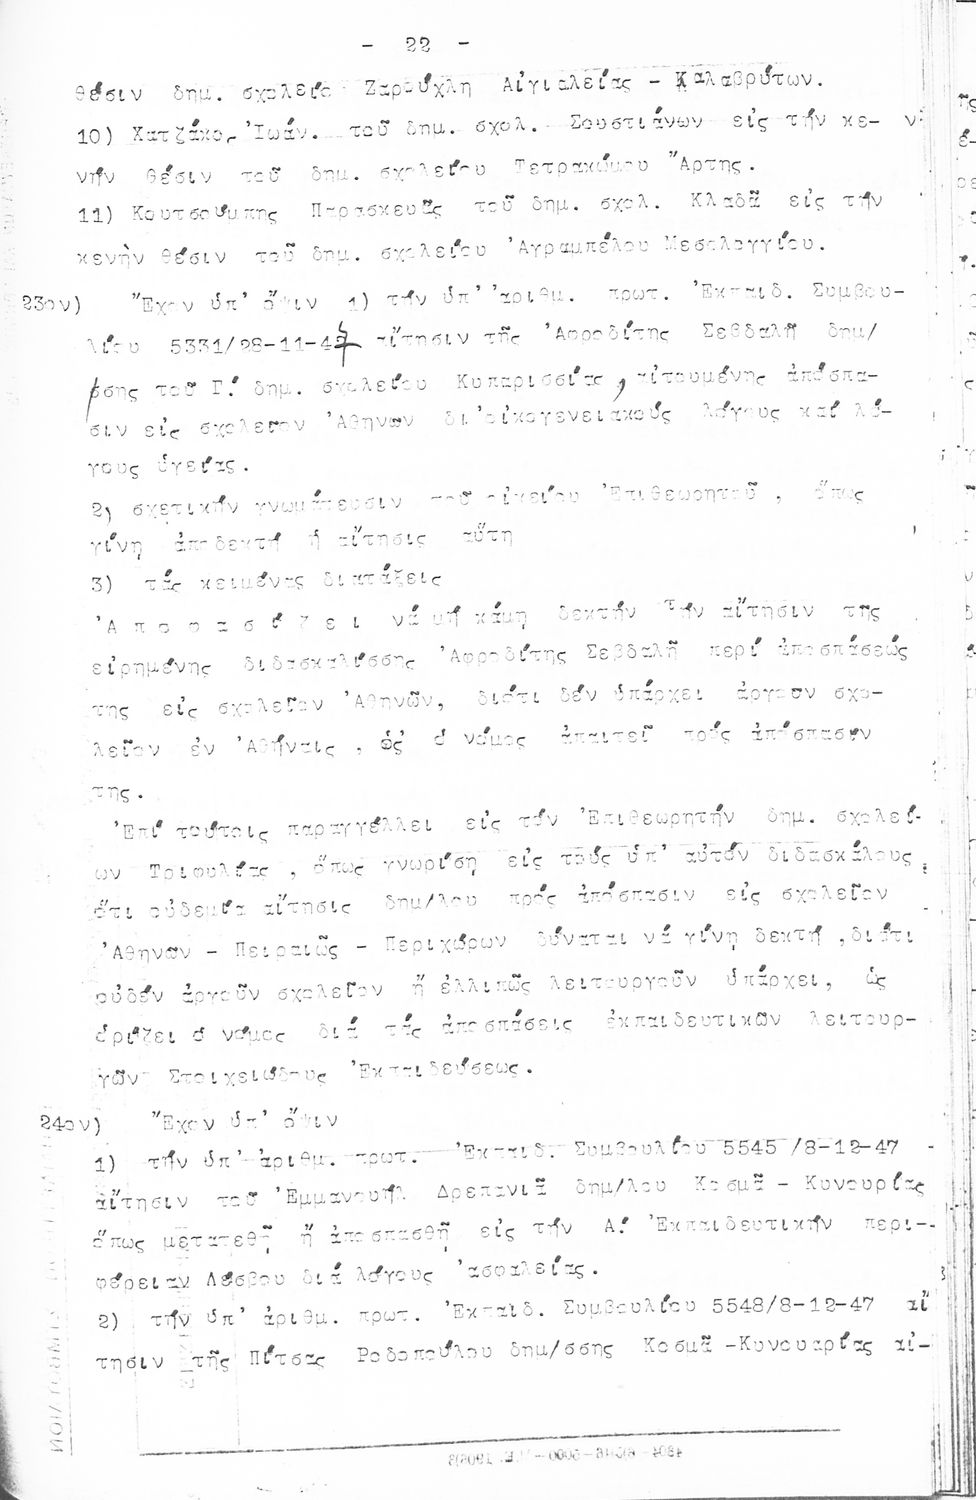 - 22 -
θέσιν δημ. σχολείο Ζαρούχλη Αἰγιαλείας - Καλαβρύτων.
10) Χατζάκο, Ἰωάν. τοῦ δημ. σχολ. Σουστιάνων εἰς τήν κε-
νήν θέσιν τοῦ δημ. σχολείου Τετρακώμου Ἄρτης.
11) Κουτσούμπης Παρασκευᾶς τοῦ δημ. σχολ. Κλαδᾶ εἰς τήν
κενὴν θέσιν τοῦ δημ. σχολείου Ἀγραμπέλου Μεσολογγίου.
23ον) Ἔχον ὑπ' ὄψιν 1) τήν ὑπ' ἀριθμ. πρωτ. Ἐκπαιδ. Συμβου-
λίου 5331/28-11-47 αἴτησιν τῆς Ἀφροδίτης Σεβδαλῆ δημ/
σσης τοῦ Γ! δημ. σχολείου Κυπαρισσίας, αἰτουμένης ἀπόσπα-
σιν εἰς σχολεῖον Ἀθηνῶν δι' οἰκογενειακούς λόγους καί λό-
γους ὑγείας.
2) σχετικήν γνωμάτευσιν τοῦ οἰκείου Ἐπιθεωρητοῦ, ὅπως
γίνῃ ἀποδεκτή ἡ αἴτησις αὕτη
3) τάς κειμένας διατάξεις
Ἀ π ο φ α σ ί ζ ε ι νά μή κάμῃ δεκτήν τήν αἴτησιν τῆς
εἰρημένης διδασκαλίσσης Ἀφροδίτης Σεβδαλῆ περί ἀποσπάσεώς
της εἰς σχολεῖον Ἀθηνῶν, διότι δέν ὑπάρχει ἀργοῦν σχο-
λεῖον ἐν Ἀθήναις, ὡς ὁ νόμος ἀπαιτεῖ πρός ἀπόσπασιν
της.
Ἐπί τούτοις παραγγέλλει εἰς τόν Ἐπιθεωρητήν δημ. σχολεί-
ων Τριφυλίας, ὅπως γνωρίσῃ εἰς τούς ὑπ' αὐτόν διδασκάλους,
ὅτι οὐδεμία αἴτησις δημ/λου πρός ἀπόσπασιν εἰς σχολεῖον
Ἀθηνῶν - Πειραιῶς - Περιχώρων δύναται νά γίνῃ δεκτή, διότι
οὐδέν ἀργοῦν σχολεῖον ἤ ἐλλιπῶς λειτουργοῦν ὑπάρχει, ὡς
ὁρίζει ὁ νόμος διά τάς ἀποσπάσεις ἐκπαιδευτικῶν λειτουρ-
γῶν Στοιχειώδους Ἐκπαιδεύσεως.
24ον) Ἔχον ὑπ' ὄψιν
1) τήν ὑπ' ἀριθμ. πρωτ. Ἐκπαιδ. Συμβουλίου 5545 /8-12-47
αἴτησιν τοῦ Ἐμμανουήλ Δρεπανιᾶ δημ/λου Κοσμᾶ - Κυνουρίας
ὅπως μετατεθῇ ἤ ἀποσπασθῇ εἰς τήν Α! Ἐκπαιδευτικήν περι-
φέρειαν Λέσβου διά λόγους ἀσφαλείας.
2) τήν ὑπ' ἀριθμ. πρωτ. Ἐκπαιδ. Συμβουλίου 5548/8-12-47 αἴ
τησιν τῆς Πίτσας Ροδοπούλου δημ/σσης Κοσμᾶ -Κυνουαρίας αἰ-